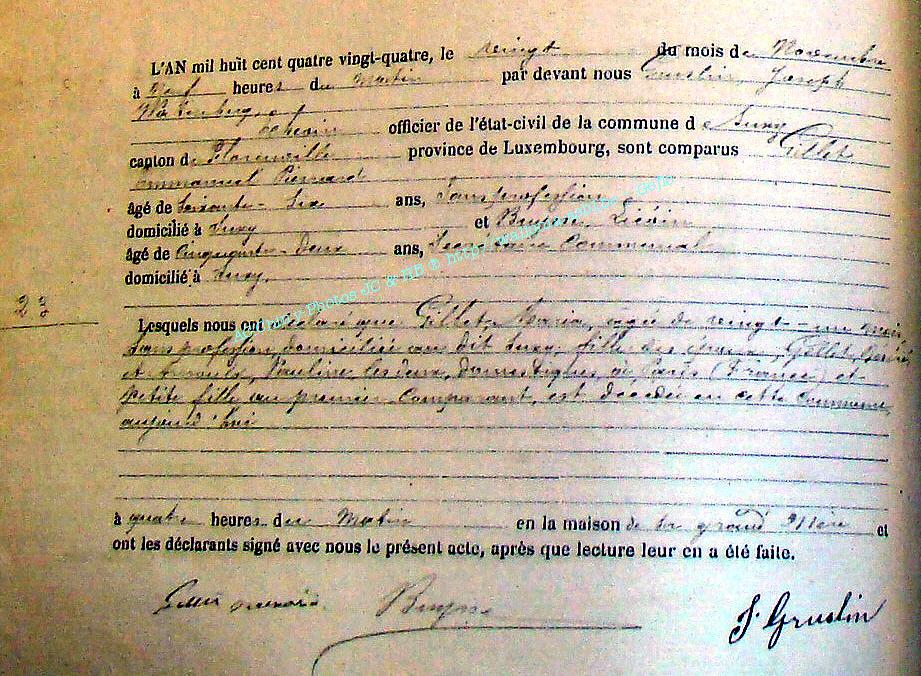 L'AN mil huit cent quatre vingt-quatre, le vingt du mois de Novembre
à Neuf heures du Matin par devant nous Gruslin, Joseph
échevin officier de l'état-civil de la commune de Suxy
canton de Florenville province de Luxembourg, sont comparus Gillet
Emmanuel Pierrard
âgé de Soixante-six ans, Sans profession
domicilié à Suxy et Buysse, Liévin
âgé de Cinquante-deux ans, Secrétaire Communal
domicilié à Suxy,
23
Lesquels nous ont déclaré que Gillet, Maria, agée de vingt-un mois
Sans profession, domiciliée au dit Suxy, fille des époux Gillet,
et Arnould, Pauline, les deux, domestiques à Paris (France) et
petite fille au premier Comparant, est décédée en cette commune,
aujourd'hui
à quatre heures du Matin en la maison de sa grand Mère et
ont les déclarants signé avec nous le présent acte, après que lecture leur en a été faite.
Buysse
J. Gruslin